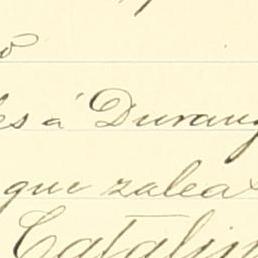 o
es á Durang
que zalea
Catalin